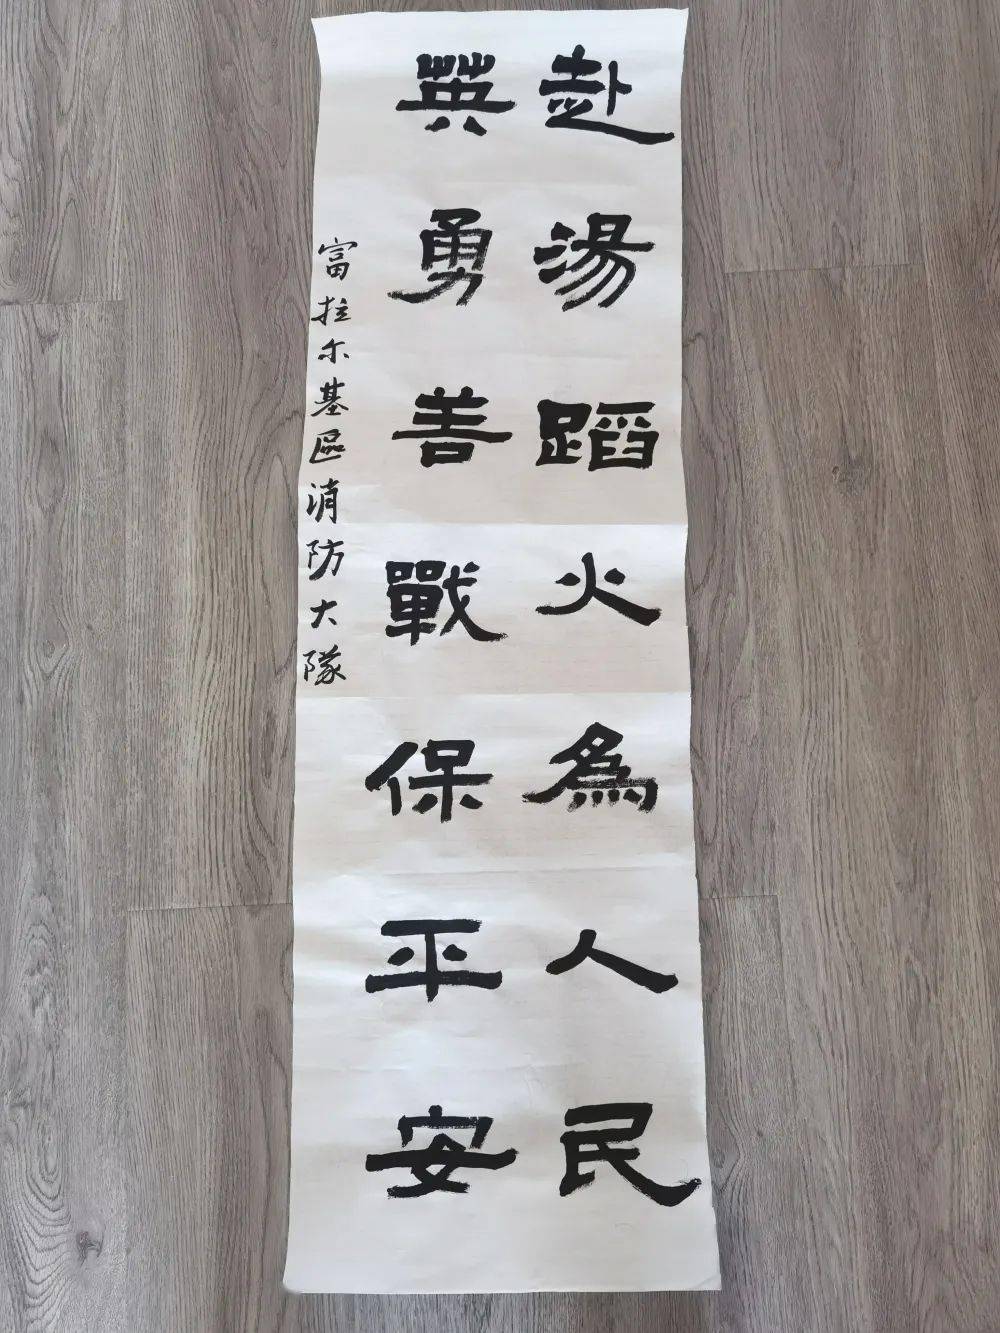 赴湯蹈火為人民
英勇善戰保平安
富拉尔基區消防大隊